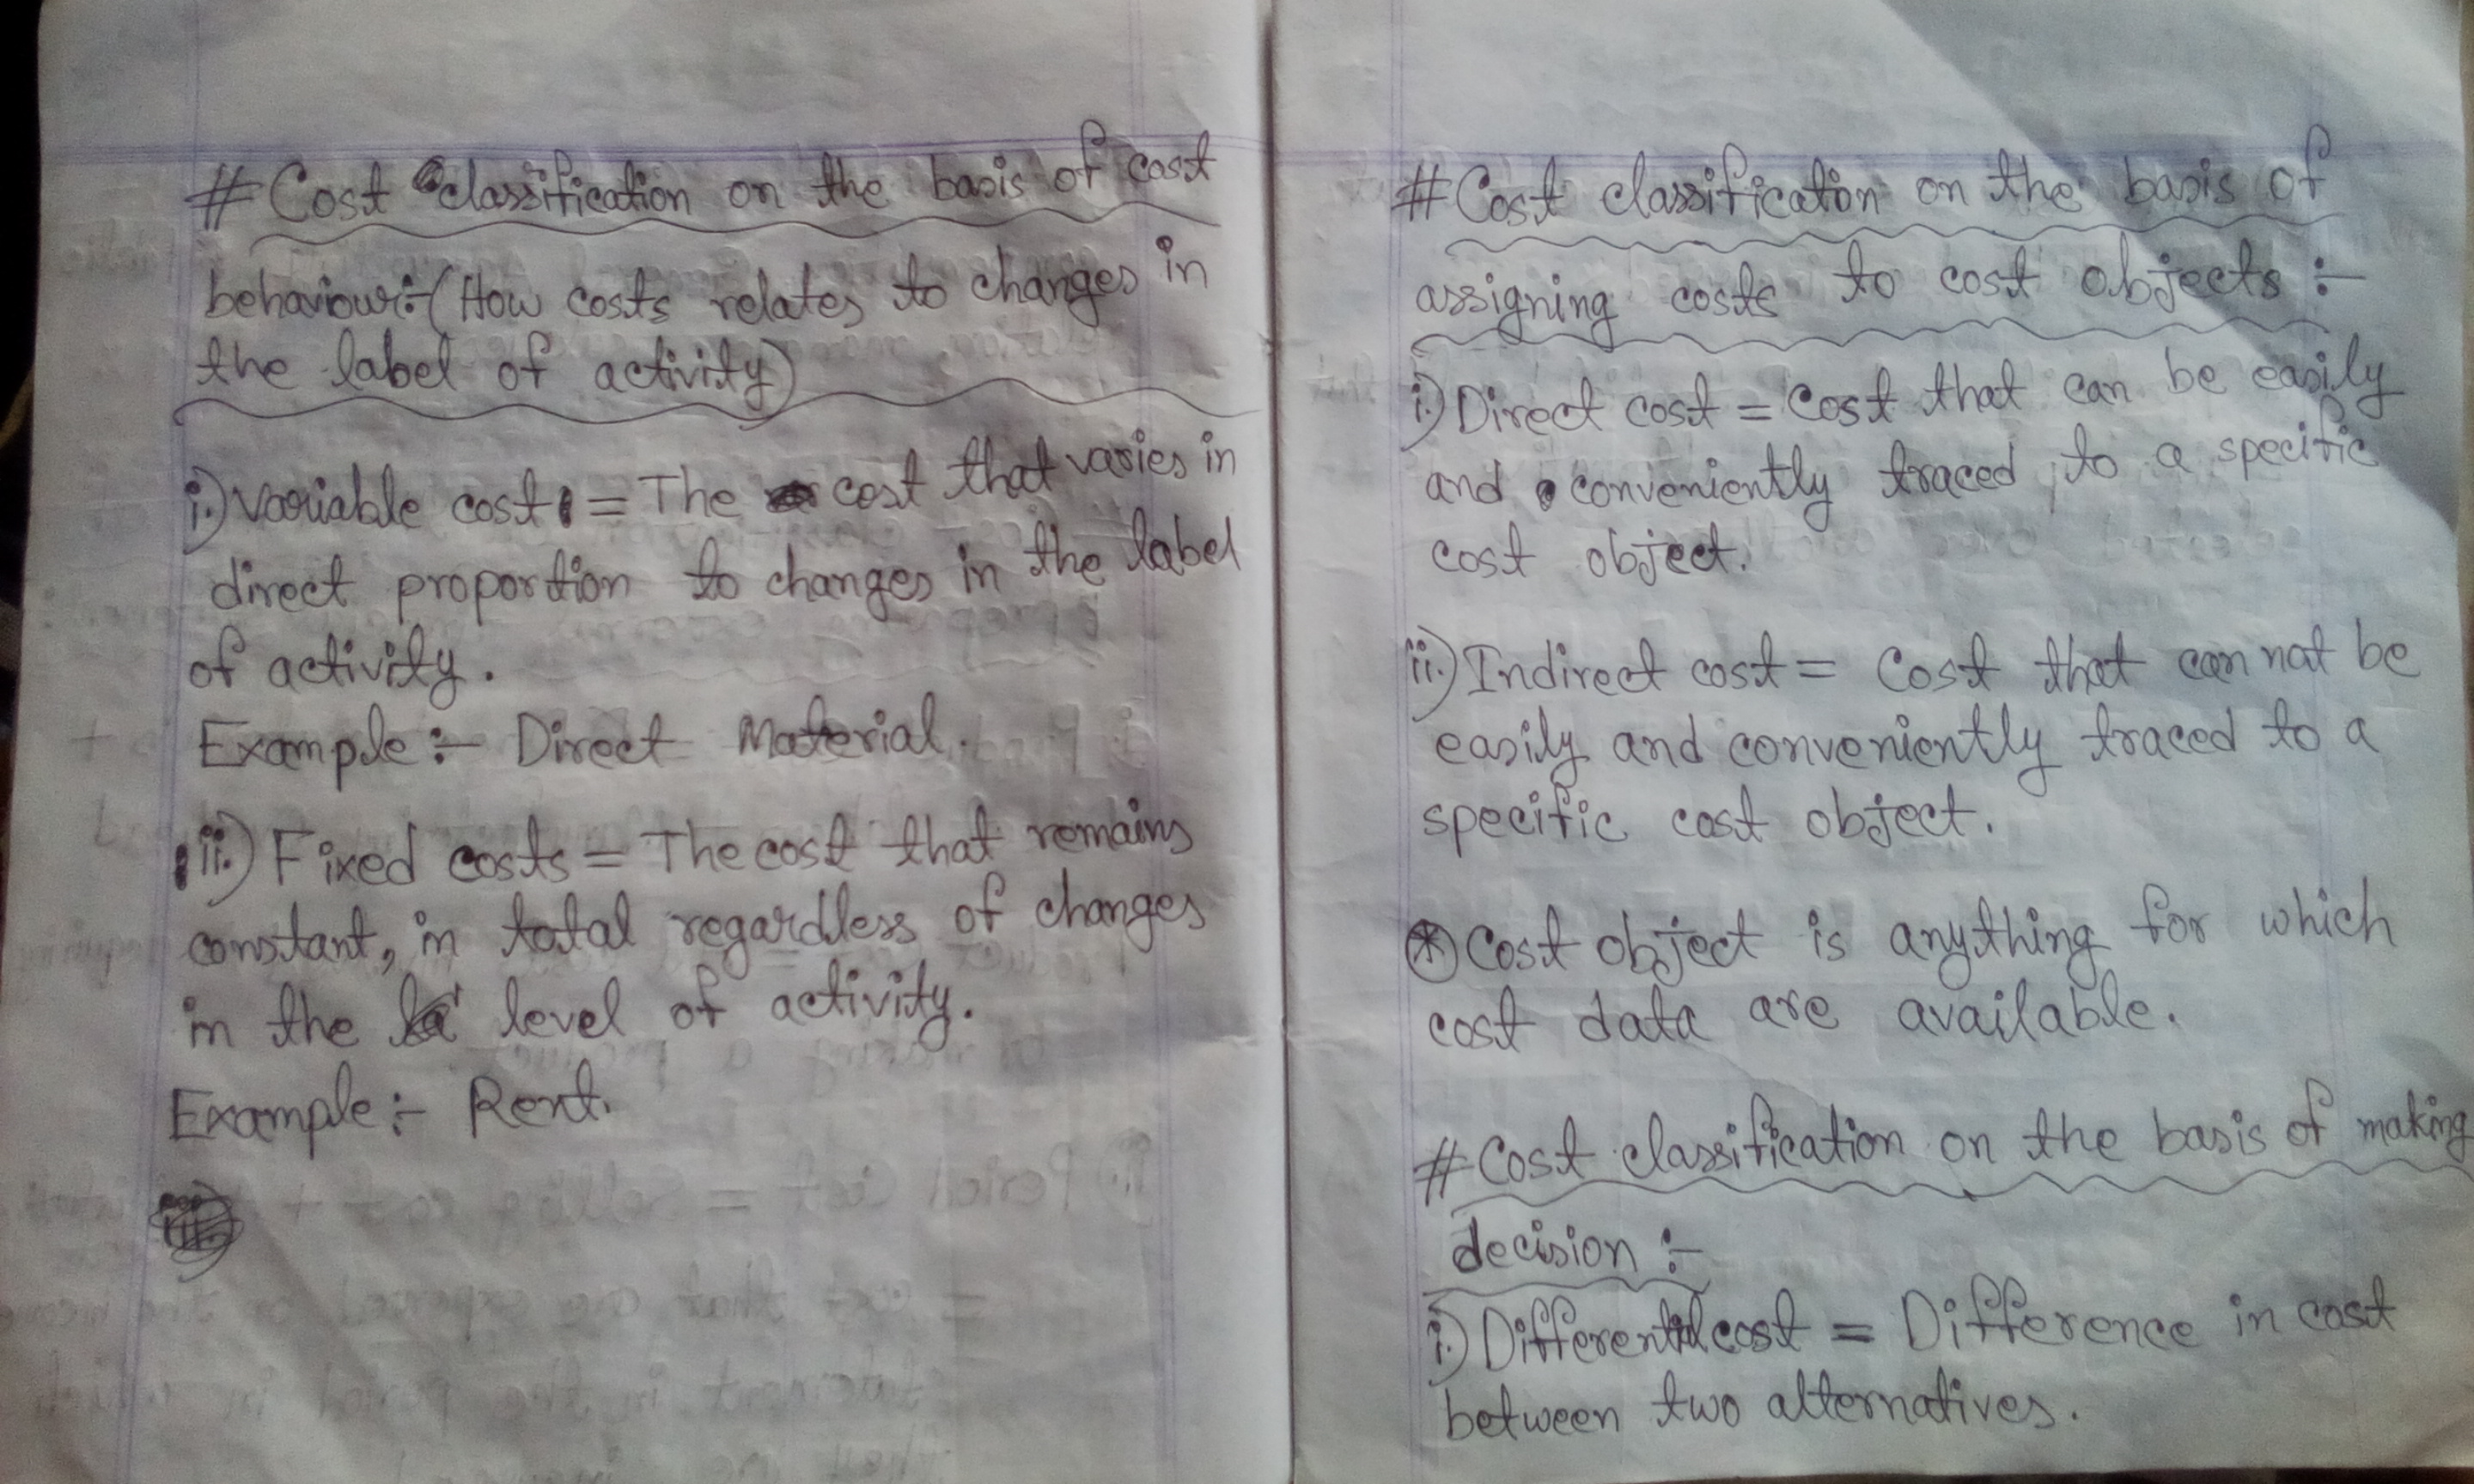 # Cost classification on the basis of cost
behaviour:- (How costs relates to changes in
the label of activity)
i.) Variable cost = The cost that varies in
direct proportion to changes in the label
of activity.
Example :- Direct Material.
ii.) Fixed costs = The cost that remains
constant, in total regardless of changes
in the level of activity.
Example :- Rent.
# Cost classification on the basis of
assigning costs to cost objects :-
i.) Direct cost = Cost that can be easily
and conveniently traced to a specific
cost object.
ii.) Indirect cost = Cost that can not be
easily and conveniently traced to a
specific cost object.
* Cost object is anything for which
cost data are available.
# Cost classification on the basis of making
decision :-
i.) Differential cost = Difference in cost
between two alternatives.